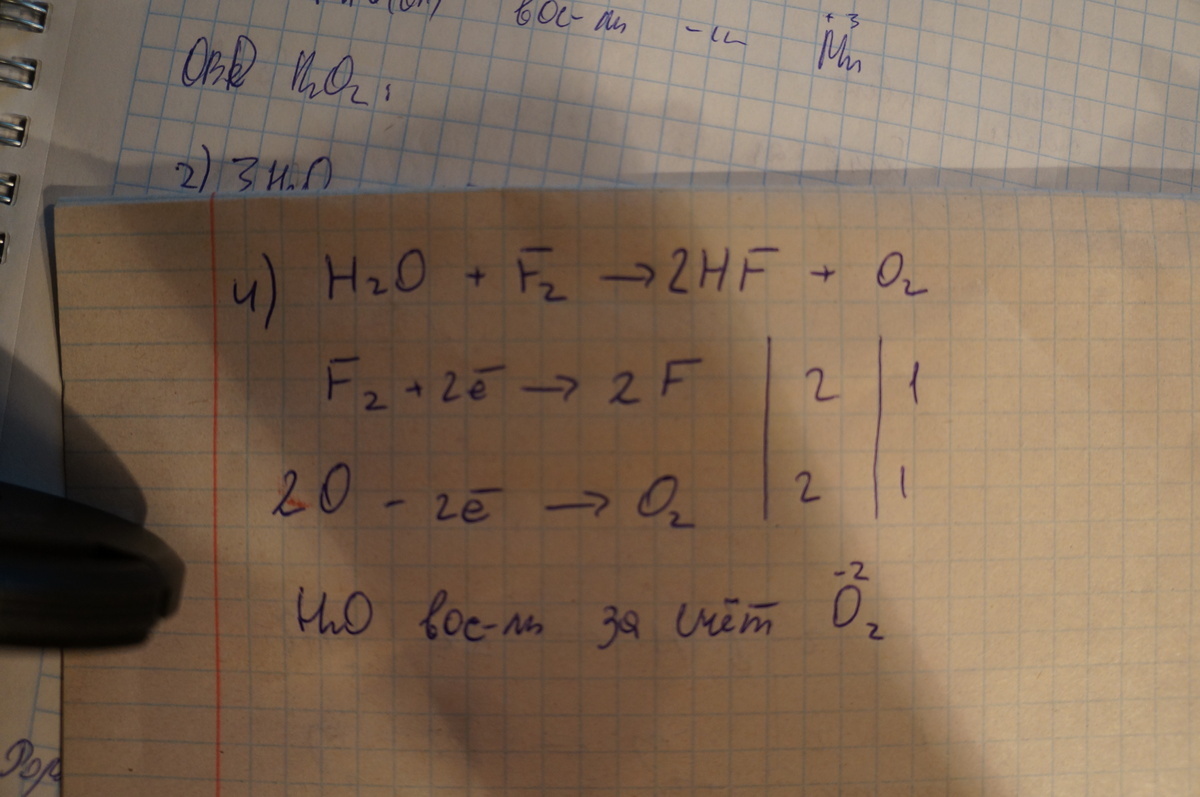 вос-ль -"- +3 Mn
ОВР H₂O₂,
2) 3H₂O
4) H₂O + F₂ → 2HF + O₂
F₂ + 2ē → 2F | 2 | 1
2O - 2ē → O₂ | 2 | 1
H₂O вос-ль за счёт O₂ -2